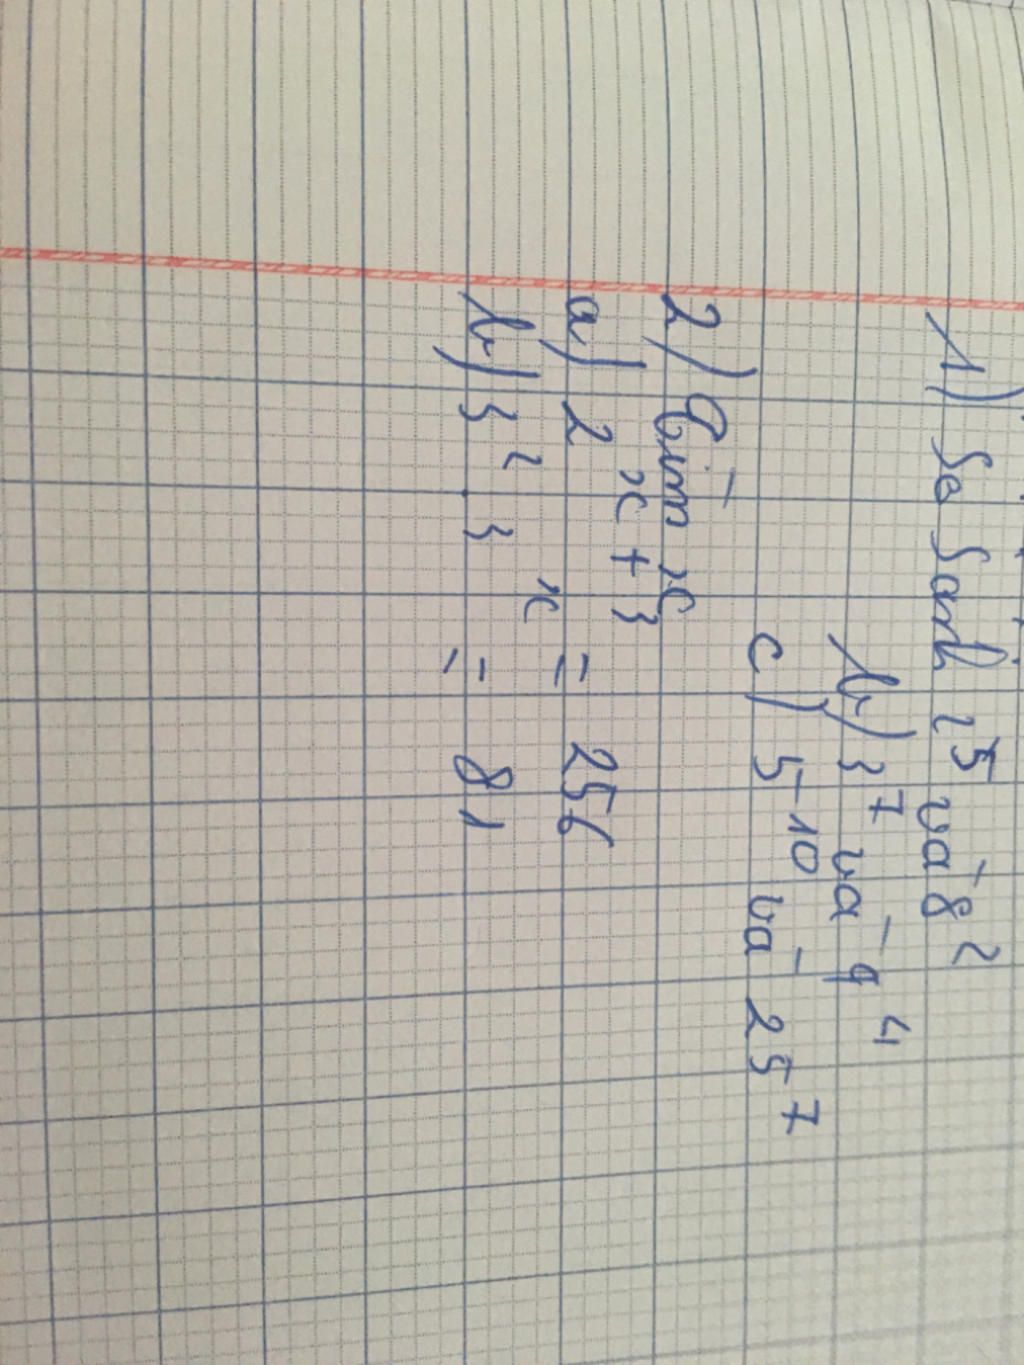 1) So sánh 2⁵ và 8²
b) 3⁷ và 9⁴
c) 5¹⁰ và 25⁷
2) Tìm x
a) 2ˣ⁺³ = 256
b) 3² · 3ˣ = 81